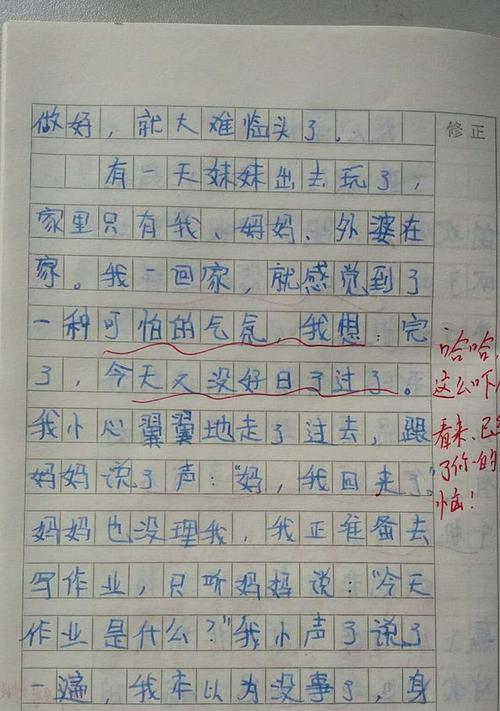 修正
做好，就大难临头了。
有一天妹妹出去玩了，
家里只有我、妈妈、外婆在
家。我一回家，就感觉到了
一种可怕的气氛，我想：完
了，今天又没好日子过了。
我小心翼翼地走了过去，跟
妈妈说了声：“妈，我回来了。”
妈妈也没理我，我正准备去
写作业，只听妈妈说：“今天
作业是什么？”我小声了说了
一遍，我本以为没事了，身
哈哈，
这么吓
看来，已
了你的
小